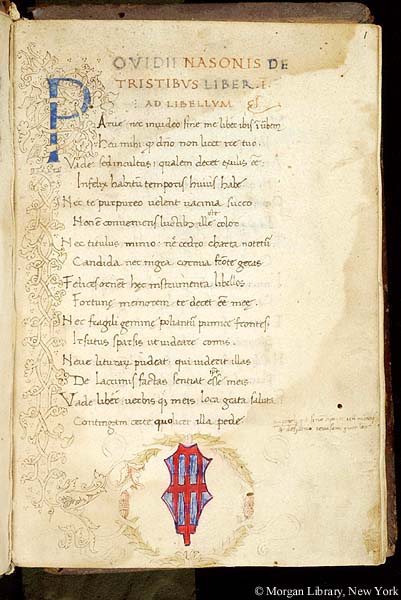 1
P OVIDII NASONIS DE
TRISTIBVS LIBER .I.
AD LIBELLVM
PArue nec inuideo sine me liber ibis i urbem
Hei mihi q dno non licet ire tuo.
Vade sed incultus: qualem decet exulis ee:
Infelix habitum temporis huius habe
Nec te purpureo velent vacinia succo
Non e conueniens luctibus ille color
Nec titulus minio: nec cedro charta notetur
Candida nec nigra cornua fronte geras
Felices ornent hec instrumenta libellos
Fortune memorem te decet ee mee.
Nec fragili gemine poliantur pumice frontes
Irsutus sparsis ut videare comis.
Neue liturar pudeat: qui viderit illas
De lacrimis factas sentiat esse meis.
Vade liber uerbis q meis loca grata saluta
Contingam certe quo licet illa pede
© Morgan Library, New York